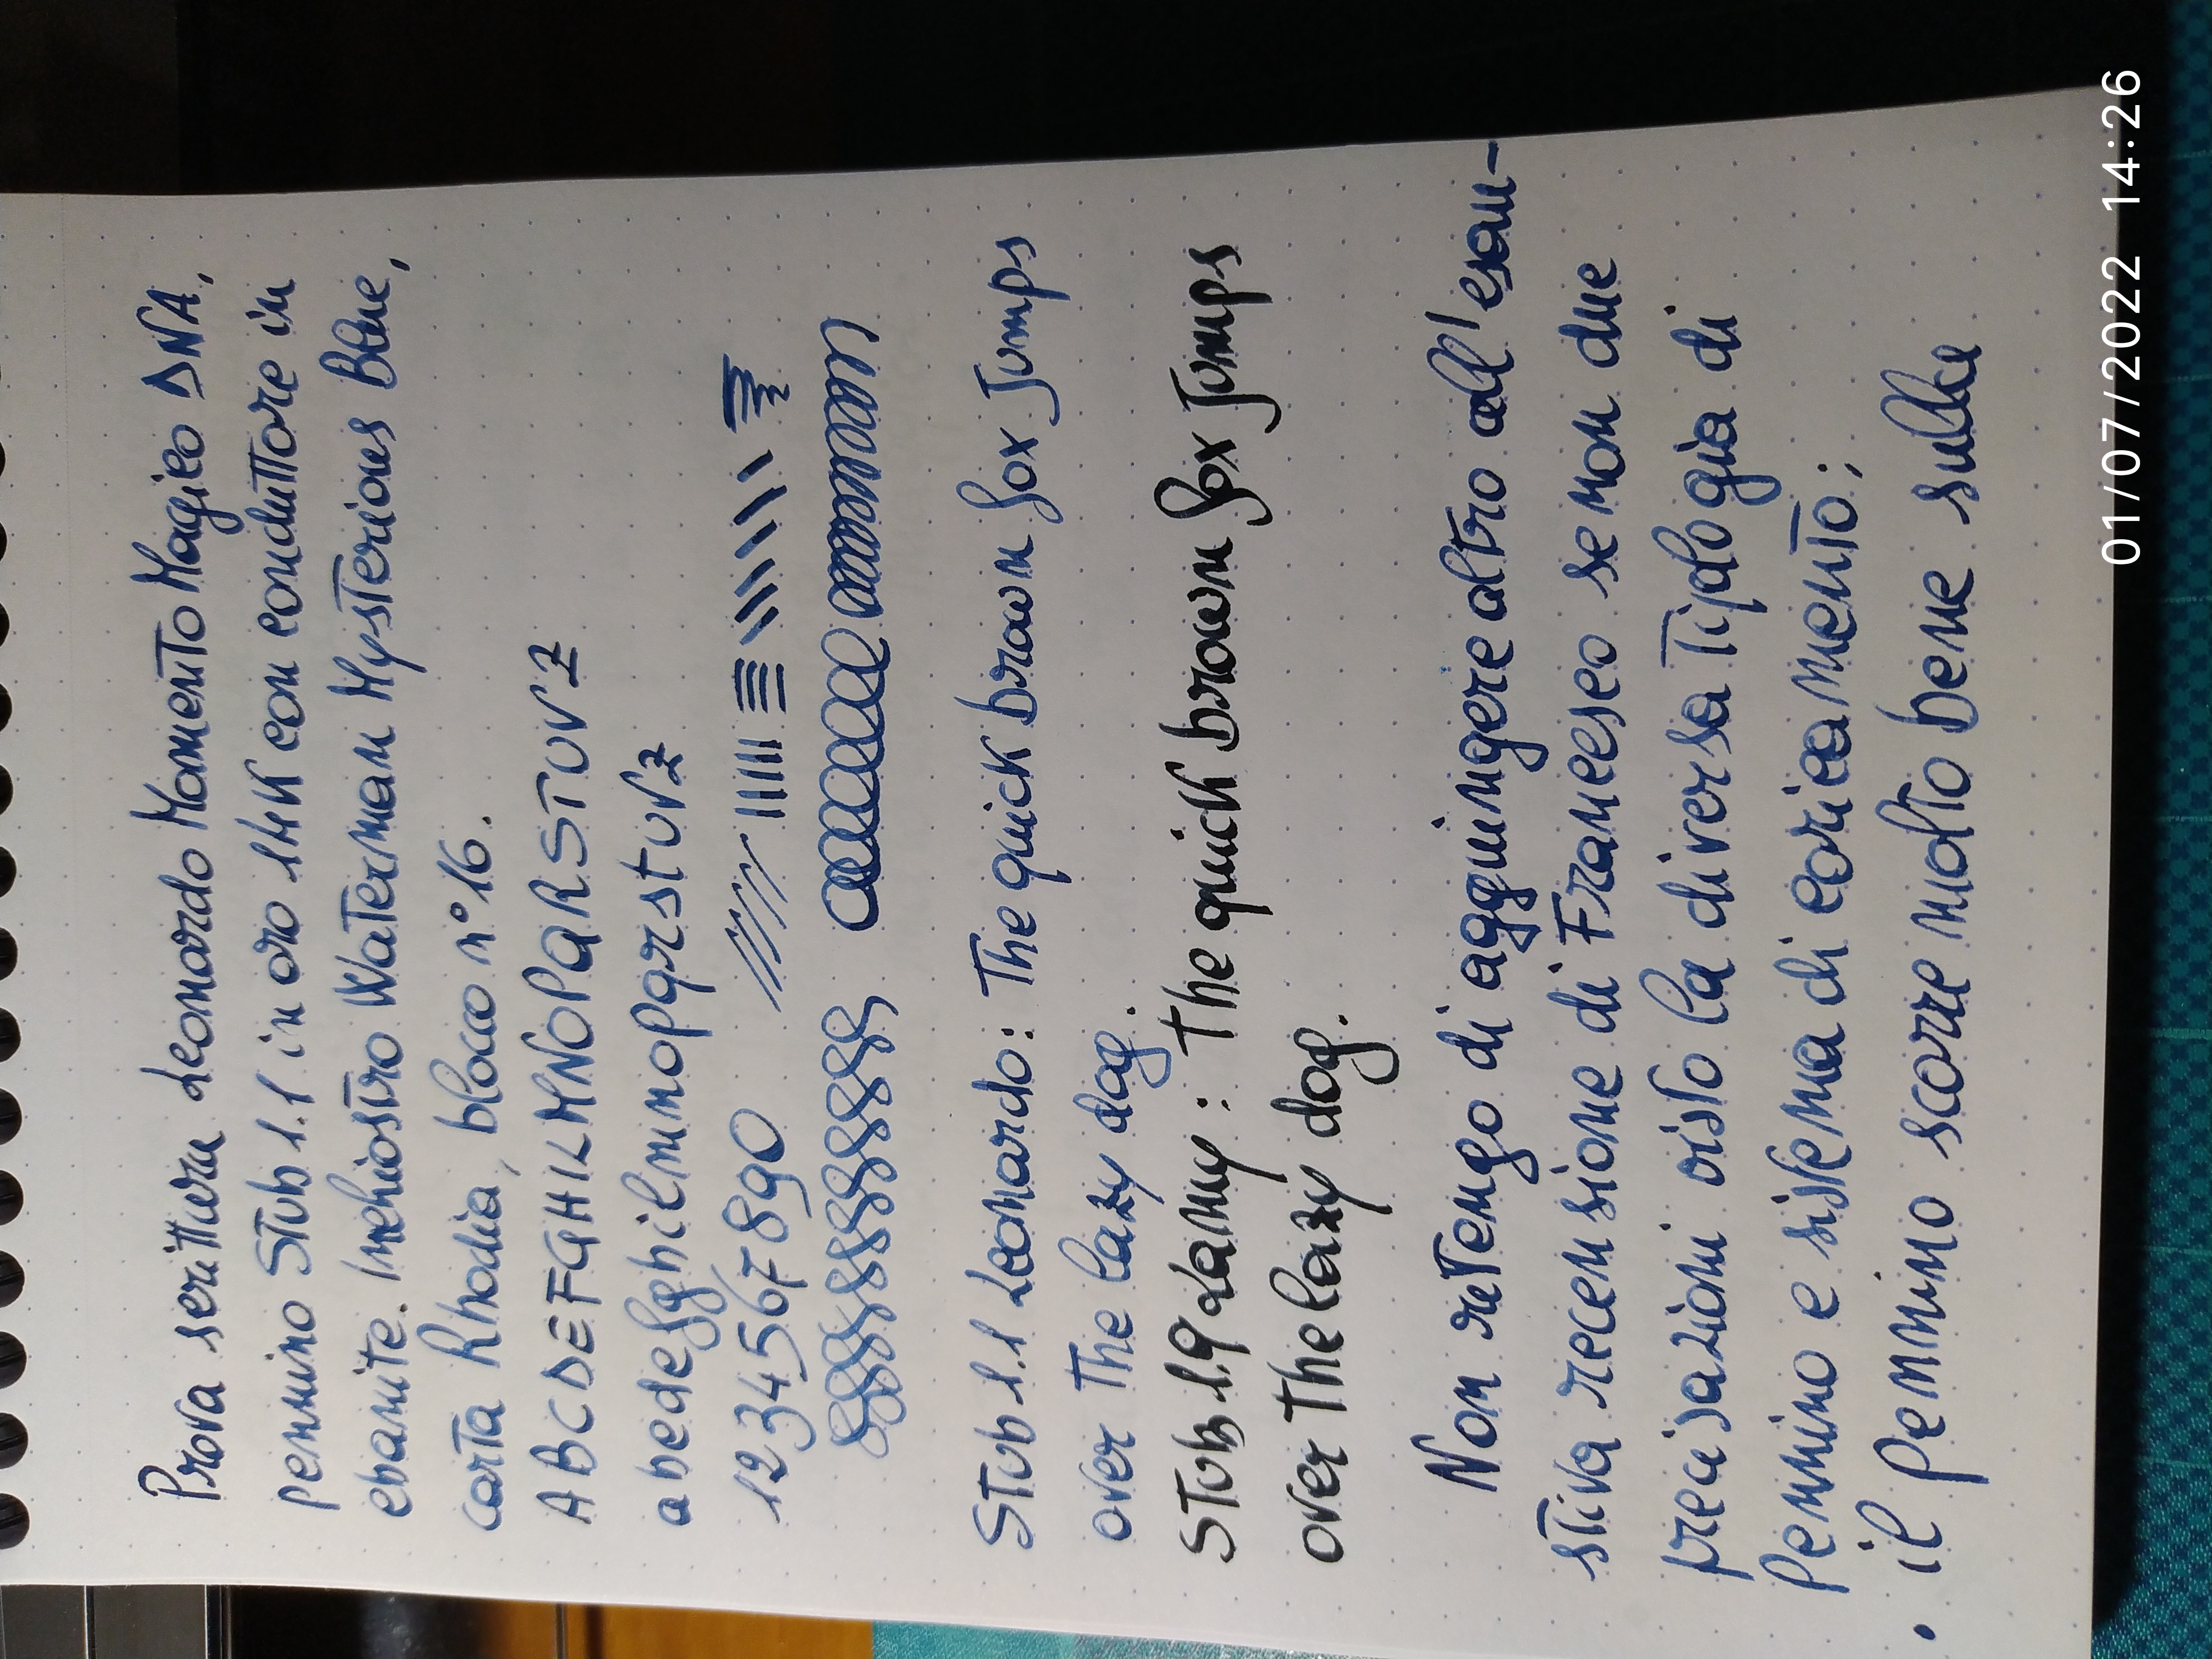 Prova scrittura Leonardo Momento Magico DNA,
pennino Stub 1.1 in oro 14K con conduttore in
ebanite. Inchiostro Waterman Mysterious Blue,
carta Rhodia, blocco n°16.
ABCDEFGHILMNOPQRSTUVZ
abcdefghilmnopqrstuvz
1234567890
Stub 1.1 Leonardo: The quick brown fox Jumps
over The lazy dog.
Stub 1.9 Lamy: The quick brown fox Jumps
over The lazy dog.
Non reTengo di aggiungere altro all'esau-
stiva recensione di Francesco se non due
precisazioni visto la diversa Tipologia di
pennino e sistema di caricamento:
• il pennino scorre molto bene sulla
01/07/2022 14:26